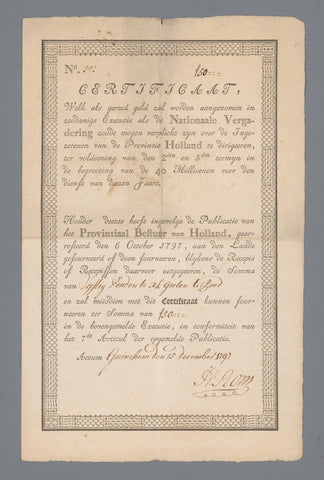 No.
ƒ50:-:-
CERTIFICAAT,
Welk als gereed geld zal worden aangenomen in
zoodanige Executie als de Nationaale Verga-
dering zoude mogen verplicht zyn over de Inge-
zetenen van de Provintie Holland te dirigeren,
ter voldoening van den 2den en 3den termyn in
de begrooting van de 40 Millioenen voor den
dienst van deezen Jaare.
Houder deezes heeft ingevolge de Publicatie van
het Provintiaal Bestuur van Holland, gear-
resteerd den 6 October 1797, aan den Lande
gefourneerd of doen fourneeren, blykens de Recepis
of Recepissen daarvoor uitgegeven, de Somma
van
en zal mitsdien met dit Certificaat kunnen four-
neeren ter Somma van ƒ50:-:-
in de bovengemelde Executie, in conformiteit van
het 7de Articul der opgemelde Publicatie.
Actum Gorinchem den 15 december 1797